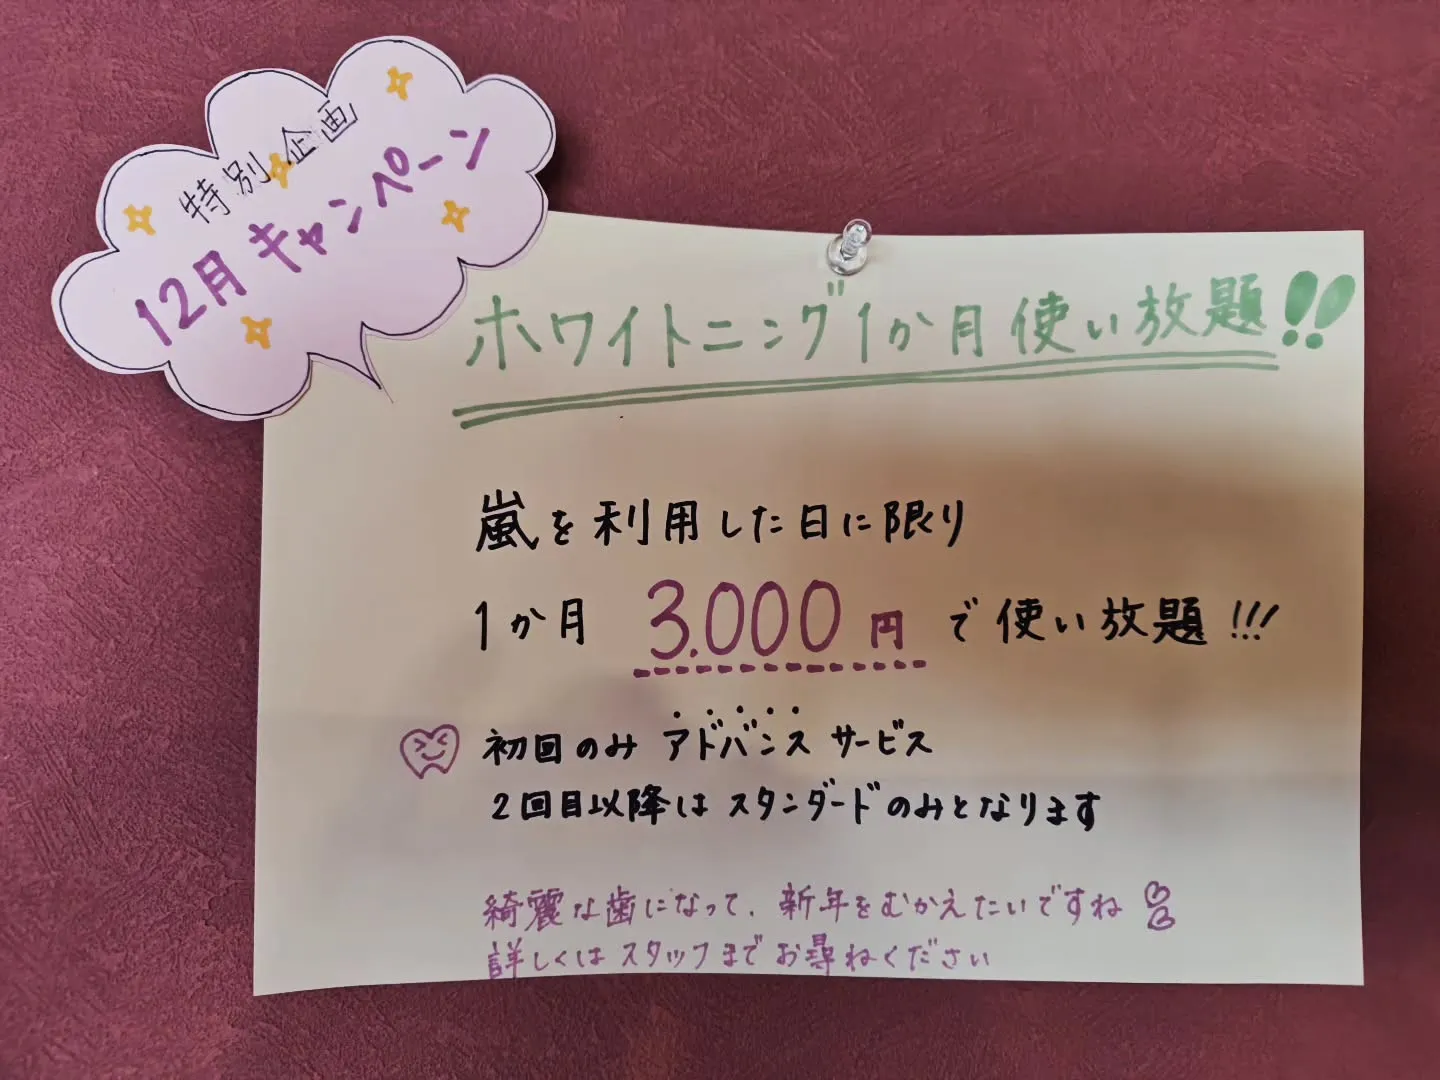 特別企画
12月キャンペーン
ホワイトニング1か月使い放題!!
嵐を利用した日に限り
1か月 3.000円で使い放題!!!
初回のみ アドバンス サービス
2回目以降は スタンダードのみとなります
綺麗な歯になって、新年をむかえたいですね
詳しくは スタッフまで お尋ねください